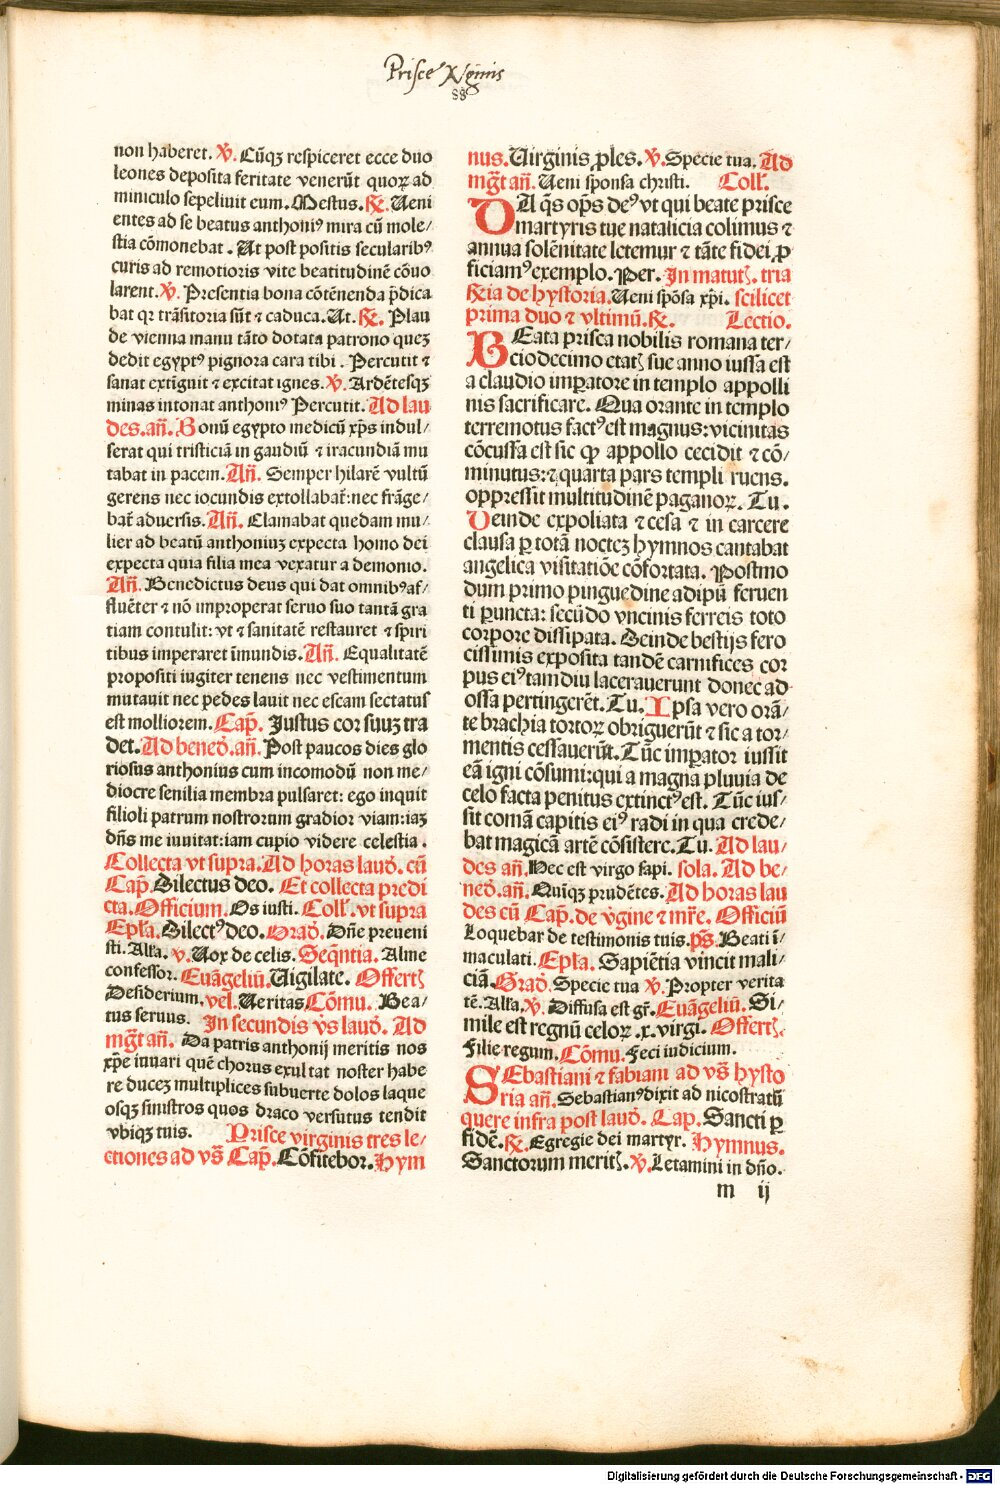 Prisce v̔ginis
88
non haberet. ℣. Cũqꝫ respiceret ecce duo
leones deposita feritate venerũt quoꝝ ad
miniculo sepeliuit eum. Mestus. ℟. Ueni
entes ad se beatus anthoniꝰ mira cũ mole⸗
stia cõmonebat. Ut post positis secularibꝰ
curis ad remotioris vite beatitudinẽ cõuo
larent. ℣. Presentia bona cõtẽnenda p̃dica
bat qꝛ trãsitoria sũt ⁊ caduca. Ut. ℟. Plau
de vienna manu tãto dotata patrono queꝫ
dedit egyptꝰ pignora cara tibi. Percutit ⁊
sanat extĩguit ⁊ excitat ignes. ℣. Ardẽtesqꝫ
minas intonat anthoniꝰ Percutit. Ad lau
des. añ. Bonũ egypto medicũ xp̃s indul⸗
serat qui tristiciã in gaudiũ ⁊ iracundiã mu
tabat in pacem. Añ. Semper hilarẽ vultũ
gerens nec iocundis extollabat̃: nec frãge⸗
bat̃ aduersis. Añ. Clamabat quedam mu⸗
lier ad beatũ anthoniuꝫ expecta homo dei
expecta quia filia mea vexatur a demonio.
Añ. Benedictus deus qui dat omnibꝰ af⸗
fluẽter ⁊ nõ improperat seruo suo tantã gra
tiam contulit: vt ⁊ sanitatẽ restauret ⁊ spiri
tibus imperaret ĩmundis. Añ. Equalitatẽ
propositi iugiter tenens nec vestimentum
mutauit nec pedes lauit nec escam sectatus
est molliorem. Cap̃. Justus cor suuꝫ tra
det. Ad bened̃. añ. Post paucos dies glo
riosus anthonius cum incomodũ non me⸗
diocre senilia membra pulsaret: ego inquit
filioli patrum nostrorum gradior viam: iaꝫ
dñs me inuitat: iam cupio videre celestia.
Collecta vt supra. Ad horas laud̃. cũ
Cap̃. Dilectus deo. Et collecta predi
cta. Officium. Os iusti. Coll̃. vt supra
Ep̃la. Dilectꝰ deo. Grad̃. Dñe preueni
sti. Alĩa. ℣. Uox de celis. Seq̃ntia. Alme
confessor. Euãgeliũ. Uigilate. Offertꝭ
Desiderium. vel. Ueritas Cõmu. Bea⸗
tus seruus. In secundis vs̃ laud̃. Ad
mg̃t añ. Da patris anthonij meritis nos
xp̃e iuuari quẽ chorus exultat noster habe
re duceꝫ multiplices subuerte dolos laque
osqꝫ sinistros quos draco versutus tendit
vbiqꝫ tuis. Prisce virginis tres le⸗
ctiones ad vs̃ Cap̃. Cõfitebor. Hym
nus. Uirginis ꝓles. ℣. Specie tua. Ad
mg̃t añ. Ueni sponsa christi. Coll̃.
DA q̃s op̃s deꝰ vt qui beate prisce
martyris tue natalicia colimus ⁊
annua solẽnitate letemur ⁊ tãte fidei ꝓ
ficiamꝰ exemplo. Per. In matutꝭ. tria
℟ia de hystoria. Ueni spõsa xp̃i. scilicet
prima duo ⁊ vltimũ. ℟. Lectio.
BEata prisca nobilis romana ter⸗
ciodecimo etatꝭ sue anno iussa est
a claudio imꝑatore in templo appolli
nis sacrificare. Qua orante in templo
terremotus factꝰ est magnus: vicinitas
cõcussa est sic ꝙ appollo cecidit ⁊ cõ⸗
minutus: ⁊ quarta pars templi ruens.
oppressit multitudinẽ paganoꝝ. Tu.
Deinde expoliata ⁊ cesa ⁊ in carcere
clausa ꝑ totã nocteꝫ hymnos cantabat
angelica visitatiõe cõfortata. Postmo
dum primo pinguedine adipũ feruen
ti ꝑuncta: secũdo vncinis ferreis toto
corpore dissipata. Deinde bestijs fero
cissimis exposita tandẽ carnifices cor
pus eiꝰ tamdiu lacerauerunt donec ad
ossa pertingerẽt. Tu. Ipsa vero orã⸗
te brachia tortoꝝ obriguerũt ⁊ sic a tor⸗
mentis cessauerũt. Tũc imꝑator iussit
eã igni cõsumi: qui a magna pluuia de
celo facta penitus extinctꝰ est. Tũc ius⸗
sit comã capitis eiꝰ radi in qua crede⸗
bat magicã artẽ cõsistere. Tu. Ad lau⸗
des añ. Hec est virgo sapi. sola. Ad be⸗
ned̃. añ. Quĩqꝫ prudẽtes. Ad horas lau
des cũ Cap̃. de v̔gine ⁊ mr̃e. Officiũ
Loquebar de testimonis tuis. ps̃. Beati ĩ⸗
maculati. Ep̃la. Sapiẽtia vincit mali⸗
ciã. Grad̃. Specie tua ℣. Propter verita
tẽ. Alĩa. ℣. Diffusa est gr̃. Euãgeliũ. Si⸗
mile est regnũ celoꝝ .x. virgi. Offertꝭ.
Filie regum. Cõmu. Feci iudicium.
SEbastiani ⁊ fabiani ad vs̃ hysto
ria añ. Sebastianꝰ dixit ad nicostratũ
quere infra post laud̃. Cap. Sancti ꝑ
fidẽ. ℟. Egregie dei martyr. Hymnus.
Sanctorum meritꝭ. ℣. Letamini in dño.
m ij
Digitalisierung gefördert durch die Deutsche Forschungsgemeinschaft - DFG